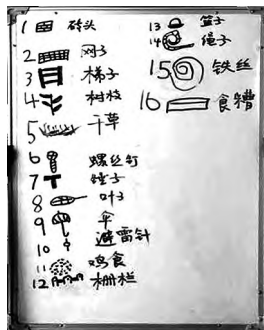 1 砖头
2 网子
3 梯子
4 树枝
5 干草
6 螺丝钉
7 锤子
8 叶子
9 伞
10 避雷针
11 鸡食
12 栅栏
13 篮子
14 绳子
15 铁丝
16 食糟